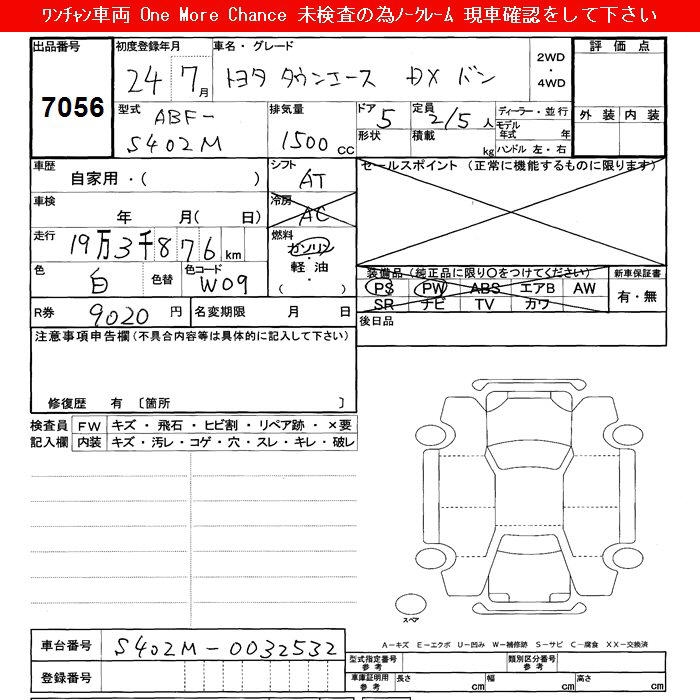 ﾜﾝﾁｬﾝ車両 One More Chance 未検査の為ﾉｰｸﾚｰﾑ 現車確認をして下さい
出品番号 7056
初度登録年月 24 7月
車名・グレード トヨタ タウンエース DX バン
2WD・4WD
評価点
外装 内装
型式 ABF-S402M
排気量 1500 cc
ドア 5
形状
定員 2/5 人
積載 kg
ディーラー・並行
モデル年式 年
ハンドル 左・右
車歴 自家用・( )
シフト AT
セールスポイント (正常に機能するものに限ります)
車検 年 月( 日)
冷房 AC
走行 19万3千876 km
燃料 ガソリン・軽油・( )
色 白 色替 色コード W09
装備品(純正品に限り○をつけてください)
PS PW ABS エアB AW
SR ナビ TV カワ
新車保証書 有・無
R券 9020 円
名変期限 月 日
後日品
注意事項申告欄(不具合内容等は具体的に記入して下さい)
修復歴 有 〔箇所
検査員記入欄
FW キズ・飛石・ヒビ割・リペア跡・×要
内装 キズ・汚レ・コゲ・穴・スレ・キレ・破レ
スペア
A－キズ E－エクボ U－凹み W－補修跡 S－サビ C－腐食 XX－交換済
車台番号 S402M-0032532
登録番号
型式指定番号 参考
類別区分番号 参考
車庫証明用 参考 長さ cm 幅 cm 高さ cm